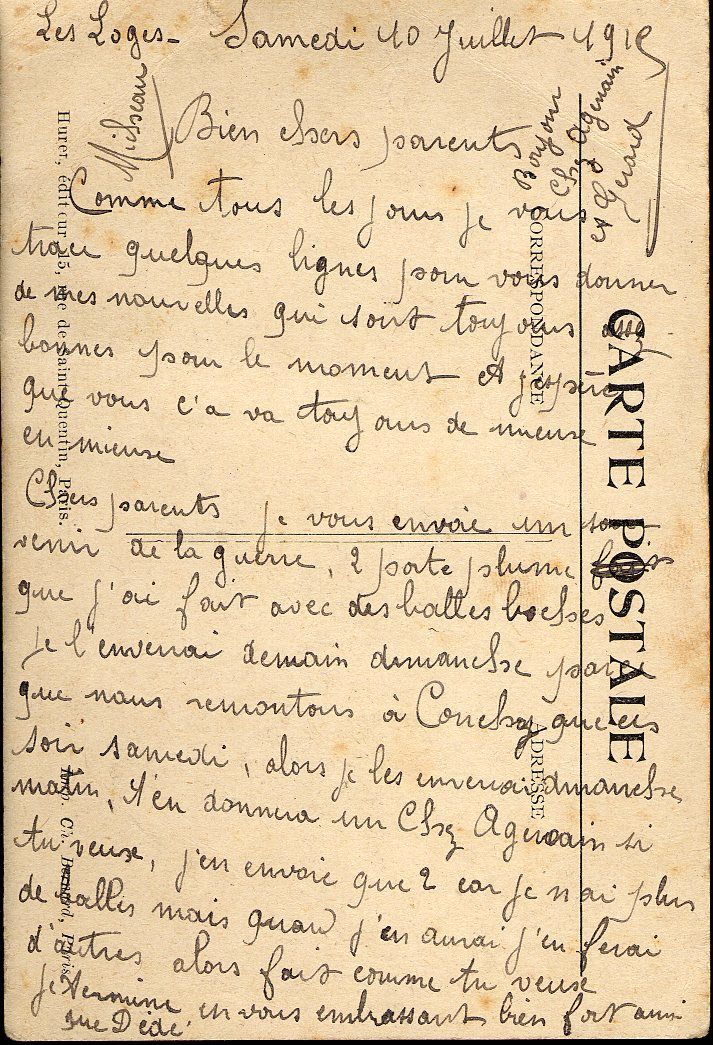 Les Loges - Samedi 10 Juillet 1915
Misseau
Bien chers parents
Bonjour
Chez Agenain
et Gerard
Comme tous les jours je vous
trace quelques lignes pour vous donner
de mes nouvelles qui sont toujours assez
bonnes pour le moment et j'espère
que vous c'a va toujours de mieuse
en mieuse
Chers parents je vous envoie un sou-
venir de la guerre, 2 porte plume
que j'ai fait avec des balles boches
je l'enverrai demain dimanche parce
que nous remontons à Conchy que ces
soir samedi, alors je les enverrai dimanche
matin, t'en donnera un Chez Agenain si
tu veuse, j'en envoie que 2 car je n'ai plus
de balles mais quand j'en aurai j'en ferai
d'autres alors fait comme tu veuse
je termine en vous embrassant bien fort ainsi
que Dédé
CARTE POSTALE
CORRESPONDANCE
ADRESSE
Huret, éditeur, 15, rue de Saint-Quentin, Paris.
Imp. Ch. Bernard, Paris